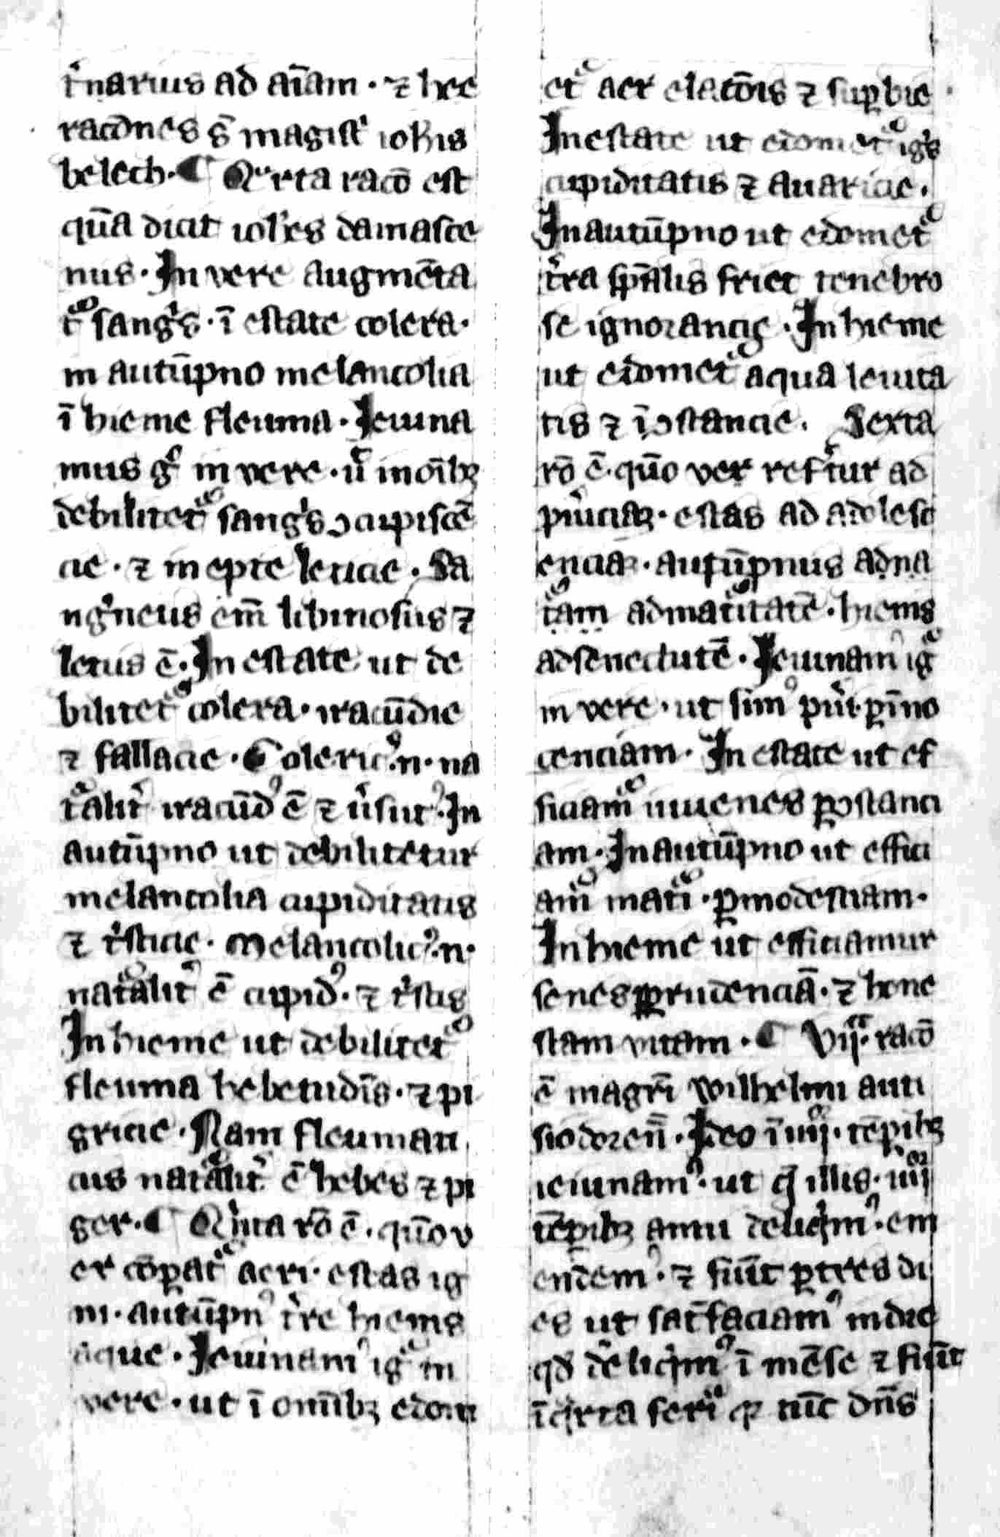 t̉narius ad aı̄am · ⁊ hee
racōnes s̄ magistr̉ ioh̄is
belech · ¶ Qͣrta racō est
quā dicit ioh̄es damasce
nus · In vere augmēta
tᷣ sangͥs · ī estate colera ·
in autūpno melancolia
ī hieme fleuma · Ieiuna
mus gͦ in vere · ut̉
debilitetᷣ sangͥs ↄcupiscē
cie · ⁊ inepte leticie · Sa
ngͥneus em̄ libinosus ⁊
letus ē · In estate ut de
bilitetᷣ colera · iracūdie
⁊ fallacie · Coleric⁹ · n · na
tᷣalit̉ iracūd⁹ ē ⁊ In
autūpno ut debilitetur
melancolia cupiditatis
⁊ tͥsticie · Melancolic⁹ · n ·
natᷣalit̉ ē cupid⁹ · ⁊ tͥstis
In hieme ut debilitetᷣ
fleuma hebetudīs · ⁊ pi
gricie · Nam fleumati
cus natᷣalit̉ ē hebes ⁊ pi
ger · ¶ Qͥnta rō ē · quō v
er cōꝑatᷣ aeri · estas ig
ni · autūpn⁹ t̉re hiems
aque · Ieiunam⁹ igͥ in
vere · ut ī omı̄bꝫ edom
etᷣ aer elacōis ⁊ suꝑbie ·
In estate ut edometᷣ igͥs
cupiditatis ⁊ auaricie ·
In autūpno ut edometᷣ
t̉ra spūalis friet tenebro
se ignorancie · In hieme
ut edometᷣ aqua leuita
tis ⁊ īↄstancie · Sexta
rō ē · quō ver refᷣtur ad
pu̓iciaꝫ · estas ad adolesc
enciaꝫ · autūpnus ad na
tᷣam ad matᷣitatē · hiems
ad senectutē · Ieiunam⁹ igͥ
in vere · ut sim⁹ pu̓i · ꝑ īno
cenciam · In estate ut ef
ficiamᷣ iuuenes ꝑ ↄstanci
am · In autūpno ut effici
amᷣ matᷣi · ꝑ modestiam ·
In hieme ut efficiamur
senes ꝑ prudenciā · ⁊ hone
stam vitam · ¶ Vijͣ · racō
ē magr̄i Wilhelmi auti
siodoren̄ · Ideo ī iiijᵒʳ · tēpibꝫ
ieiunam⁹ · ut ꝗ illis · iiijᵒʳ
tēpibꝫ anni deliqͥm⁹ · em
endem⁹ · ⁊ fiūt ꝑ tres di
es ut satᷣfaciam⁹ in die
qd̄ deliqͥm⁹ ī mēse ⁊ fiūt
ī qͣrta feriͣ ꝙ tūc dn̄s